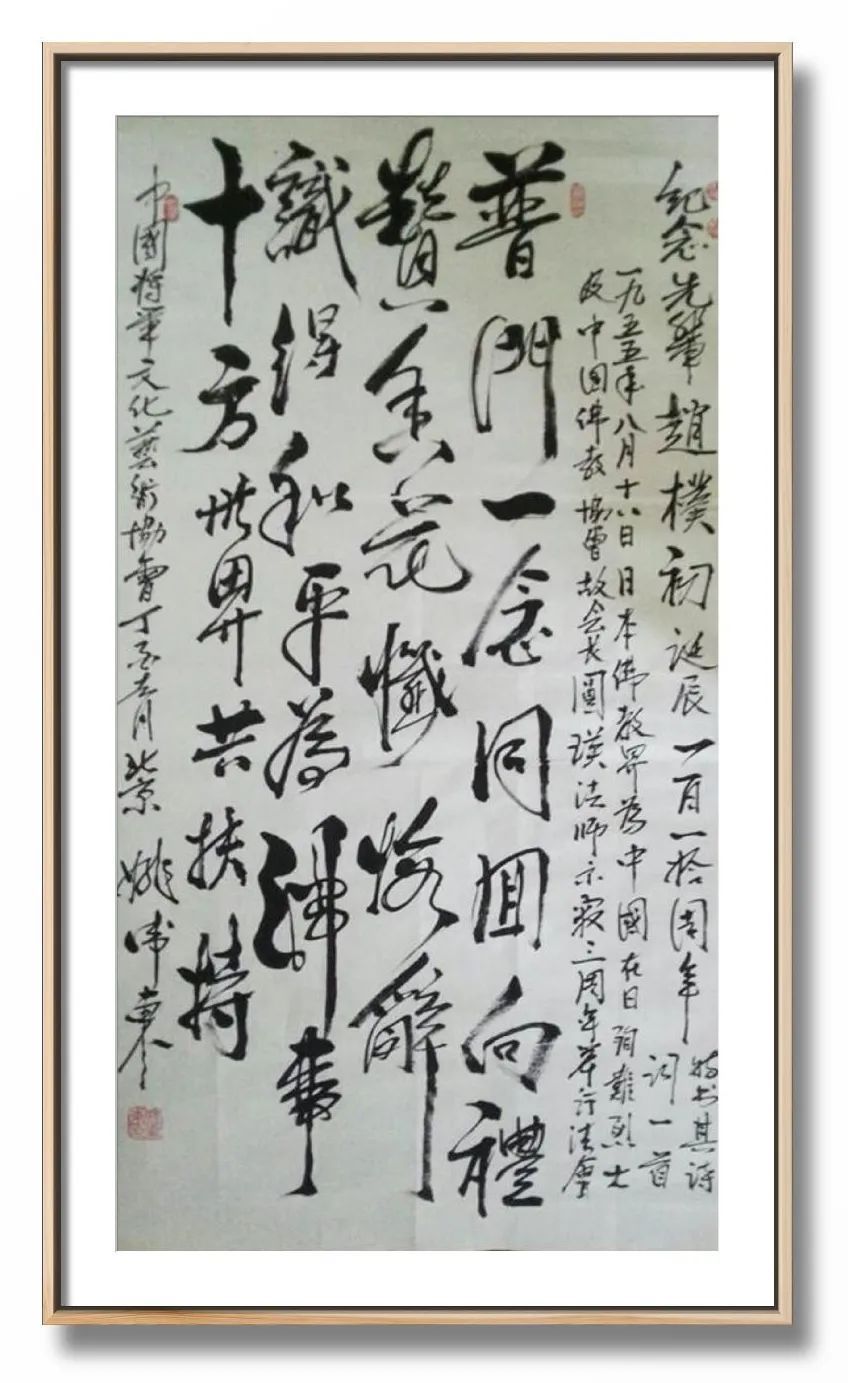 紀念先輩趙樸初诞辰一百一拾周年
特书其诗
词一首
一九五五年八月十六日日本佛教界為中國在日殉難烈士
及中国佛教協會故会长圓瑛法师示寂三周年举行法會
普門一念同回向禮
贊香花懺悔辭
識得和平為淨業
十方世界共扶持
中國将军文化藝術協會丁酉月北京姚東